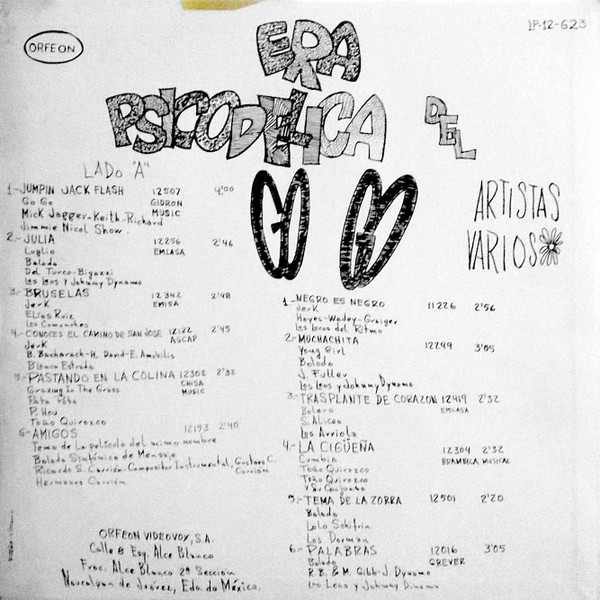 ORFEON
LP-12-623
ERA
PSICODELICA
DEL
GO GO
ARTISTAS
VARIOS
LADO "A"
1-JUMPIN JACK FLASH 12507 4'00
Go Go GIDRON
Mick Jagger-Keith-Richard MUSIC
Jimmie Nicol Show.
2-JULIA 12256 2'46
Luglio EMLASA
Balada
Del Turco-Bigazzi
Los Leos y Johnny Dynamo
3-BRUSELAS 12342 2'48
Jerk EMISA
Elias Ruiz
Los Comanches
4-CONOCES EL CAMINO DE SAN JOSE 12122 2'45
Jerk ASCAP
B. Bacharach-H. David-E. Amabilis
Blanca Estrada
5-PASTANDO EN LA COLINA 12302 2'32
Grazing In The Grass CHISA
Pata Pata MUSIC
P. Hou
Toño Quirazco
6-AMIGOS 12153 2'40
Tema de la película del mismo nombre
Balada Sinfónica de Mensaje
Ricardo S. Carrión-Compositor Instrumental, Gustavo C. Carrión
Hermanos Carrión
1-NEGRO ES NEGRO 11226 2'56
Jerk
Hayes-Wadey-Graiger
Los Locos del Ritmo
2-MUCHACHITA 12249 3'05
Young Girl
Balada
J. Fuller
Los Leos y Johnny Dynamo
3-TRASPLANTE DE CORAZON 12419 2'32
Bolero EMLASA
S. Alicea
Los Arriola
4-LA CIGÜEÑA 12304 2'32
Cumbia BRAMBILA MUSICAL
Toño Quirazco
Toño Quirazco
y Su Conjunto
5-TEMA DE LA ZORRA 12501 2'20
Balada
Lalo Schifrin
Los Dorman
6-PALABRAS 12016 3'05
Balada GREVER
R.B. & M. Gibb-J. Dynamo
Los Leos y Johnny Dynamo
ORFEON VIDEOVOX, S.A.
Calle 8 Esq. Alce Blanco
Frac. Alce Blanco 2ª Sección
Naucalpan de Juárez, Edo. de México.